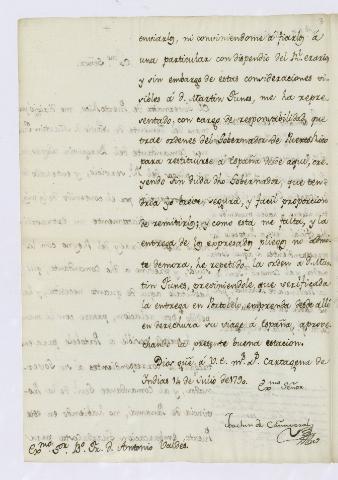 enviarlos, ni conviniendome á fiarlos á
una particular con dispendio del Rl. erario,
y sin embargo de estas consideraciones vi-
sibles á D. Martin Funes, me ha repre-
sentado, con cargo de responsabilidad, que
trae ordenes del Gobernador de Puerto rico
para restituirse á España desde aqui, cre-
yendo sin duda dho Gobernador, que ten-
dria yo breve, segura, y facil proporcion
de remitirlos, y como esta me falta, y la
entrega de los expresados pliegos no admi-
te demora, he repetido la orden á D. Mar-
tin Funes, previniendole, que verificada
la entrega en Portobelo, emprenda desde alli
en derechura su viage á España, aprove-
chando la presente buena estacion.
Dios gue. á V.E. ms. as. Cartagena de
Indias 14 de Julio de 1790.
Exmo. Señor
Joachin de Cañaveral
Exmo. Sor. Bo. Fr. D. Antonio Valdes.